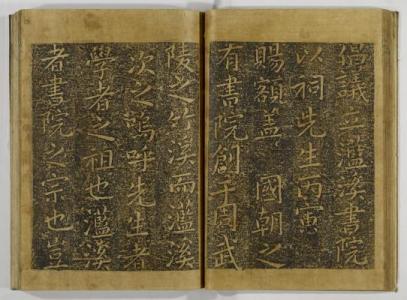 倡議立灆溪書院
以祠先生丙寅
賜額盖 國朝之
有書院創于周武
陵之竹溪而灆溪
次之嗚呼先生者
學者之祖也灆溪
者書院之宗也豈